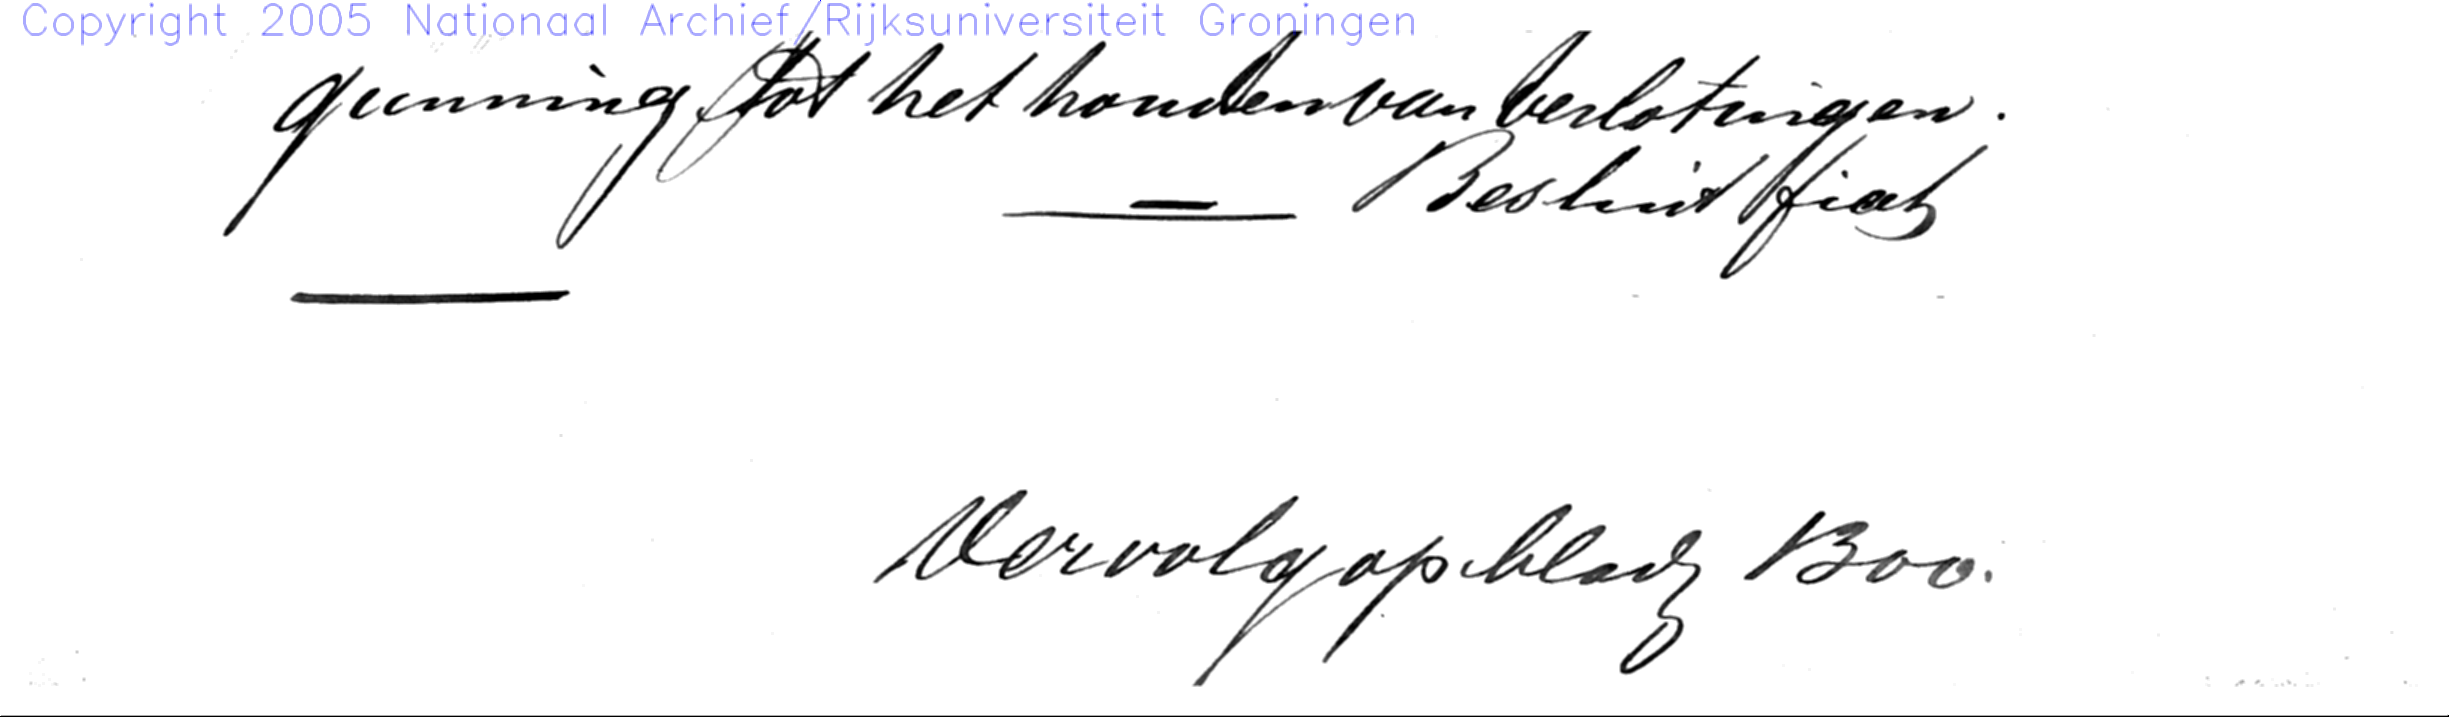 Copyright 2005 Nationaal Archief/Rijksuniversiteit Groningen
gunning tot het houden van verlotingen.
Besluit fiat
Vervolg op bladz 1300.